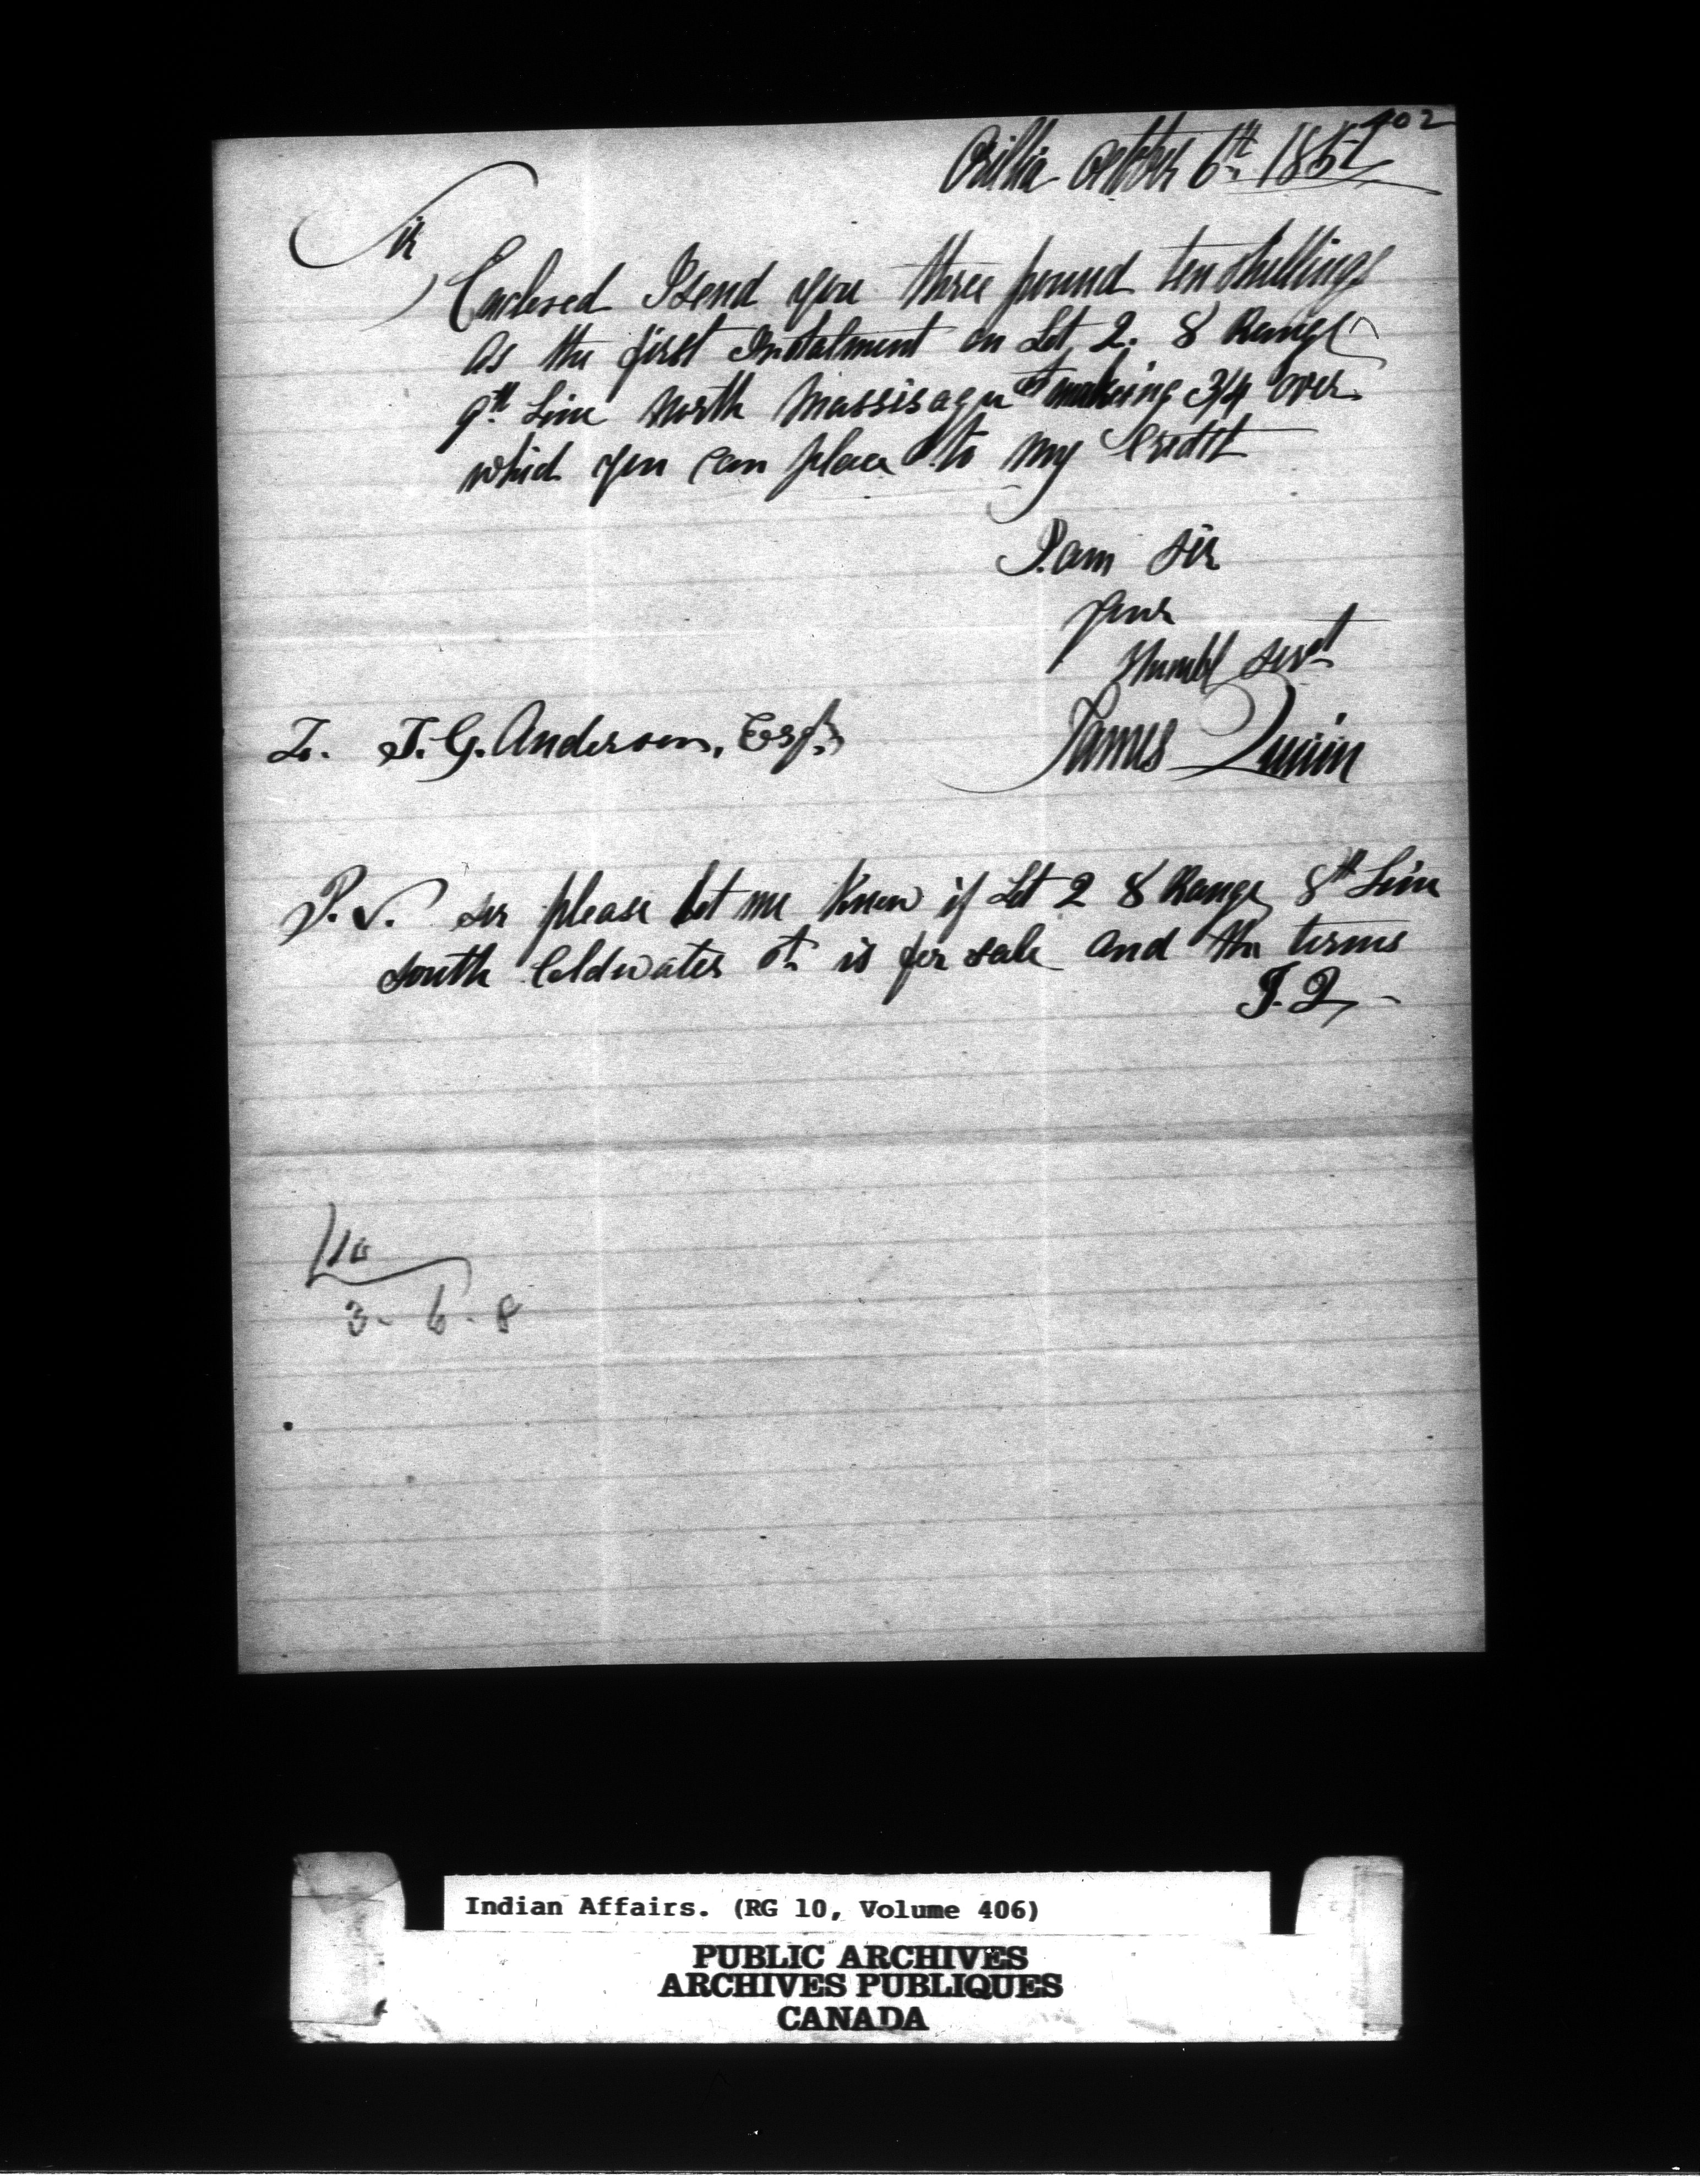 402
Orillia October 6th 1857
Sir
Enclosed I send you three pound ten shillings
as the first Instalment on Lot 2. 8 Range
9th Line North Massisaga st making 3/4 over
which you can place to my Credit
I am Sir
your
Humbl servt
James Quinn
To. T. G. Anderson, Esqr.
P.S. Sir please let me know if Lot 2 8 Range 8th Line
South Coldwater st is for sale and the terms
J. Q
3 - 6 - 8
Indian Affairs. (RG 10, Volume 406)
PUBLIC ARCHIVES
ARCHIVES PUBLIQUES
CANADA